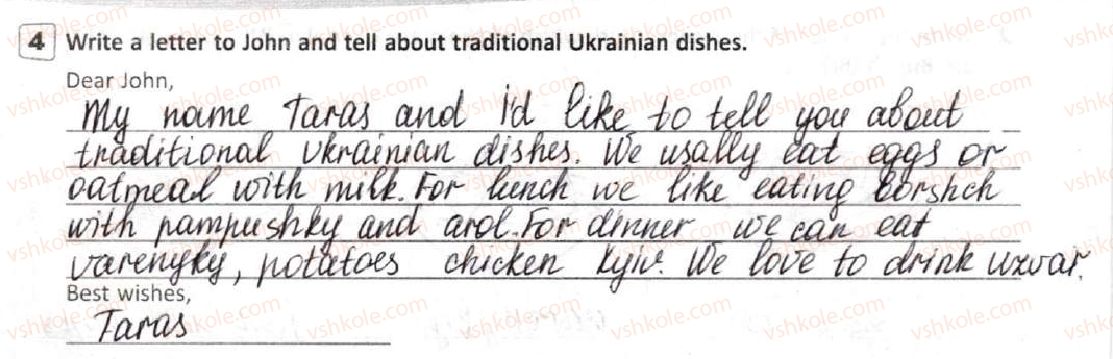 4 Write a letter to John and tell about traditional Ukrainian dishes.
Dear John,
My name Taras and I'd like to tell you about
traditional Ukrainian dishes. We usally eat eggs or
oatmeal with milk. For lunch we like eating borshch
with pampushky and arol. For dinner we can eat
varenyky, potatoes chicken Kyiv. We love to drink uzvar.
Best wishes,
Taras